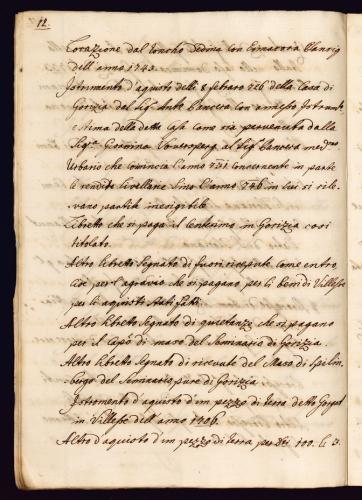 12.
dell'anno 1743.
Istrumento d'aquisto delli 8 febraro 726 della Casa di
Gorizia dal Sig.r Ant.o con annesso Istrum.to
e stima della detta Casa come sia pervenuta dalla
Sig.ra al Sig.r med.mo
Urbario che comincia l'anno 731 concernente in parte
le rendite livellarie sino l'anno 746 in cui si rile-
vano partite inesigibili
Libretto che si paga il Centesimo in Gorizia così
titolato.
Altro libretto segnato di fuori ricevute come entro,
cioè per l'agravio che si pagano per li beni di Villesse
per li aquisti stati fatti
Altro libretto segnato di quietanze che si pagano
per il capo di maso del Seminario di Gorizia.
Altro libretto segnato di ricevute del Maso di
del Seminario pure di Gorizia
Istromento d'aquisto d'un pezzo di terra detto
in Villesse dell'anno 1706.
Altro d'aquisto d'un pezzo di terra per 100. L. 3.